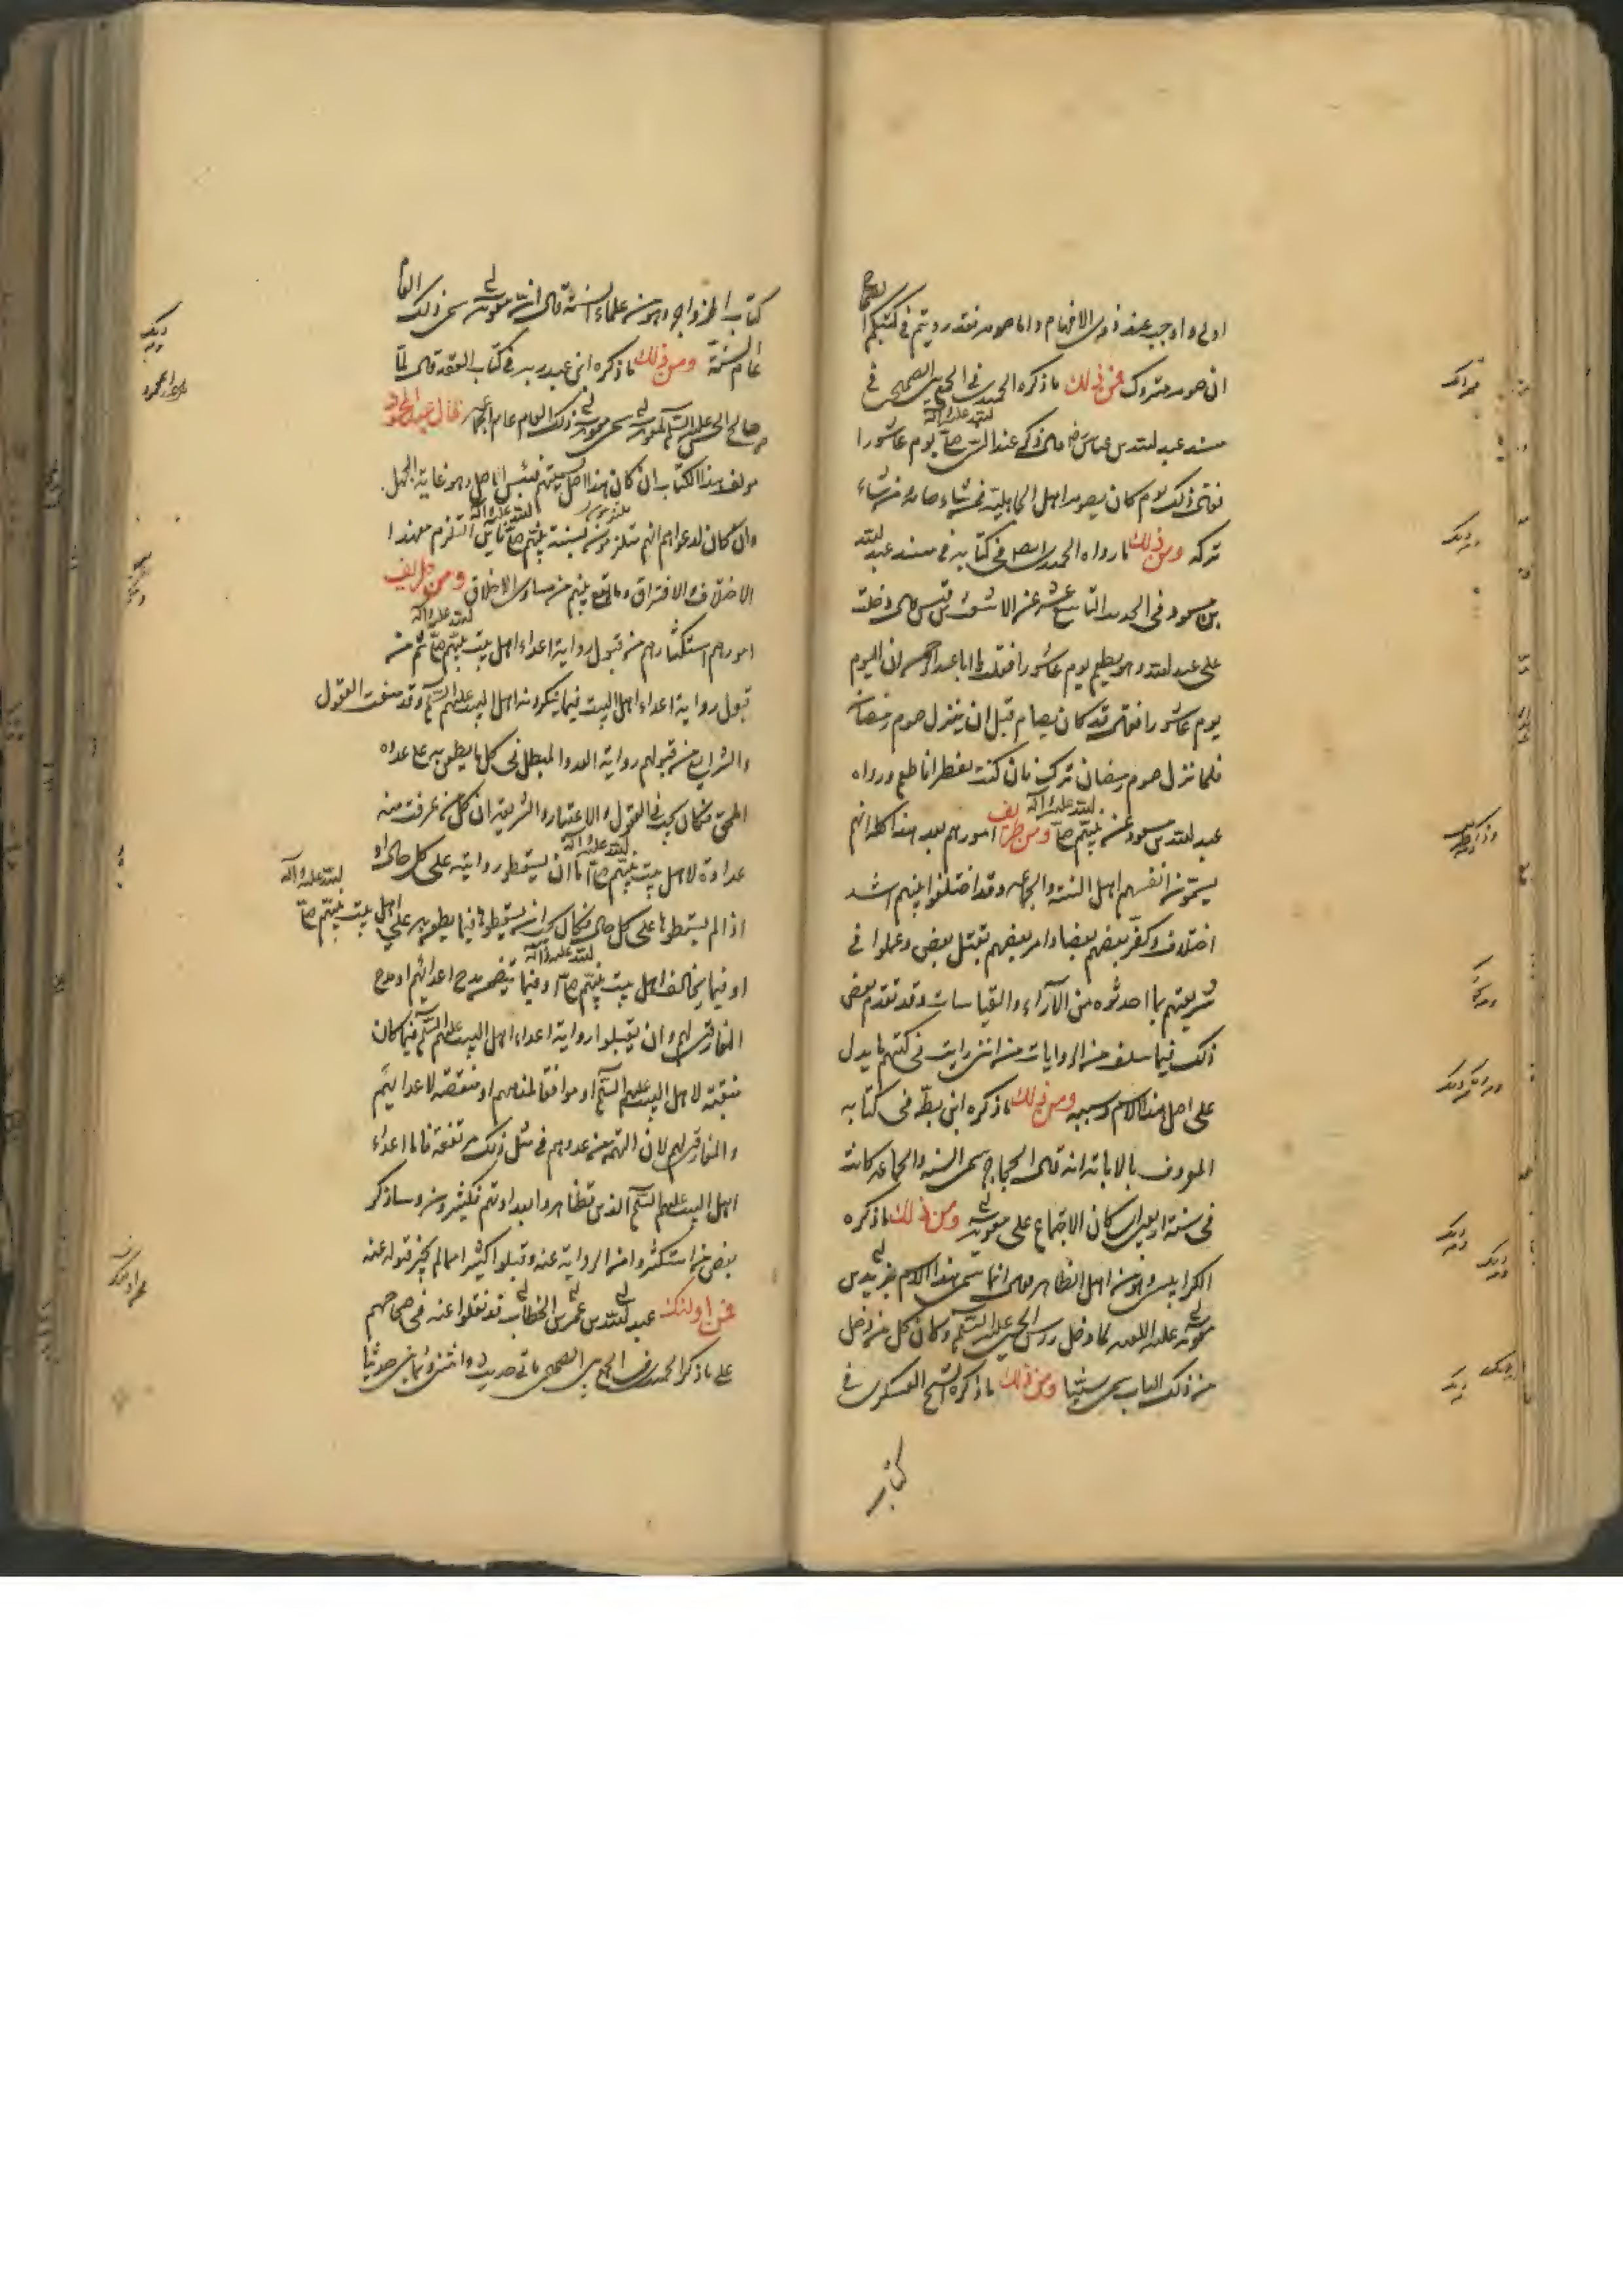 اولى واوجب عند ذوي الافهام واما صومه فقد رويتم في كتبكم الصحاح
ان صومه متروك فمن ذلك ما ذكره الحميدي في الجمع بين الصحيحين في
مسند عبد الله بن عباس قال ذكر عند النبي صلى الله عليه وآله يوم عاشورا
فقال ذلك يوم كان يصومه اهل الجاهلية فمن شاء صامه ومن شاء
تركه ومن ذلك ما رواه الحميدي ايضا في كتابه في مسند عبد الله
بن مسعود في الحديث التاسع عشر عن الاشعث بن قيس قال دخلت
على عبد الله وهو يطعم يوم عاشورا فقلت يا ابا عبد الرحمن ان اليوم
يوم عاشورا فقال قد كان يصام قبل ان ينزل صوم رمضان
فلما نزل صوم رمضان ترك فان كنت مفطرا فاطعم ورواه
عبد الله بن مسعود عن نبيهم صلى الله عليه وآله ومن طريف امورهم بعد هذا كله انهم
يسمون انفسهم اهل السنة والجماعه وقد اختلفوا بينهم اشد
اختلاف وكفر بعضهم بعضا وامر بعضهم بقتل بعض وعملوا في
شريعتهم بما احدثوه من الآراء والقياسات وقد تقدم بعض
ذلك فيما سلف من الروايات من انني رايت في كتبهم ما يدل
على اصل هذا الاسم وسببه ومن ذلك ما ذكره ابن بطة في كتابه
المعروف بالابانة انه قال الحجاج سمى السنه والجماعه كانت
في سنة اربعين كان الاجتماع على معوية ومن ذلك ما ذكره
الكرابيسي وهو من اهل الظاهر قال انما سمى هذا الاسم يزيد بن
معوية عليه اللعنه لما دخل رأس الحسين عليه السلم وكان كل من دخل
من ذلك الباب سمى سنيا ومن ذلك ما ذكره الشيخ العسكري في
كتاب
كتاب الزواجر وهو من علماء السنة قال ان معوية سمى ذلك العام
عام السنة ومن ذلك ما ذكره ابن عبد ربه في كتاب العقد قال لما
صالح الحسن عليه السلم لمعوية سمى معوية ذلك العام عام الجماعه قال عبد المحمود
مؤلف هذا الكتاب ان كان هذا اصل سنتهم فبئس الاصل وهو غاية الجهل
وان كان لدعواهم انهم ملتزمون بسنة نبيهم صلى الله عليه وآله فاين التلزم مع هذا
الاختلاف والافتراق وما وقع بينهم من مساوى الاخلاق ومن طريف
امورهم استكثارهم من قبول رواية اعداء اهل بيت نبيهم صلى الله عليه وآله ثم من
قبول رواية اعداء اهل البيت فيما ينكرونه اهل البيت عليهم السلم وقد منعت العقول
والشرايع من قبولهم رواية العدو المبطل في كل ما يطعن به على عداه
المحق فكان يجب في العقول والاعتبار والشريعة ان كل من عرفت منه
عداوة لاهل بيت نبيهم صلى الله عليه وآله اما ان يسقطوا روايته على كل حال او
اذا لم يسقطوها على كل حال فكان يجب ان يسقطوها فيما يطعن به على اهل بيت نبيهم صلى الله عليه وآله
او فيما يخالف اهل بيت نبيهم صلى الله عليه وآله وفيما يتضمن مدح اعدائهم او مدح
المفارقين لهم وان يقبلوا رواية اعداء اهل البيت عليهم السلم فيما كان
منقبة لاهل البيت عليهم السلم او موافقا لمذهبهم او منقصه لاعدائهم
والمفارقين لهم لان التهمه من عدوهم في مثل ذلك مرتفعة فاما اعداء
اهل البيت عليهم السلم الذين تظاهروا بعداوتهم فكثيرون وساذكر
بعض من استكثروا من الرواية عنه وقبلوا كثيرا مما لم يجز قبوله عنه
فمن اولئك عبد الله بن عمر بن الخطاب فقد نقلوا عنه في صحاحهم
على ما ذكر الحميدي في الجمع بين الصحيحين مائتي حديث واثنين وثمانين حديثا